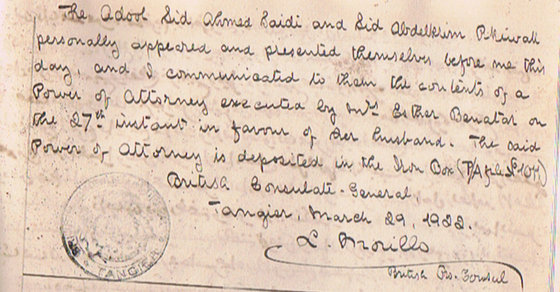 The Adool Sid Ahmed Saidi and Sid Abdelkrim
personally appeared and presented themselves before me this
day, and I communicated to them the contents of a
Power of Attorney executed by Mrs Esther Benatar on
the 27th instant in favour of her husband. The said
Power of Attorney is deposited in the Iron Box
British Consulate-General
Tangier, March 29, 1922.
L. Morillo
British Pro. Consul
TANGIER